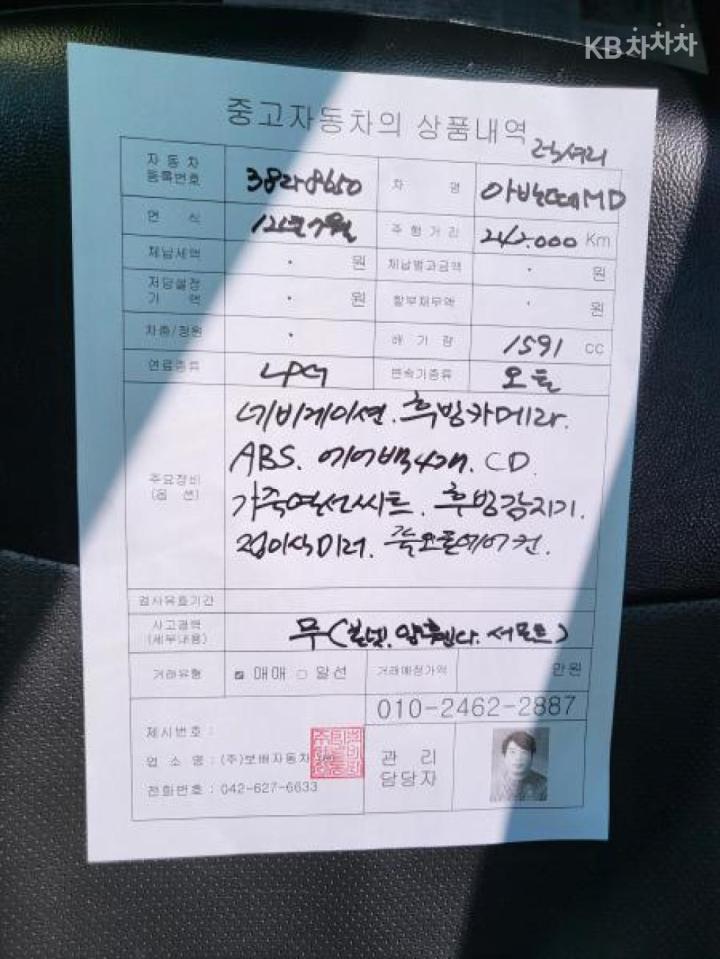 KB차차차
중고자동차의 상품내역
럭셔리
자동차 등록번호 38라8650 차 명 아반떼MD
연 식 12년 7월 주행거리 242.000 Km
체납세액 · 원 체납벌과금액 · 원
저당설정 가 액 · 원 할부채무액 · 원
차종/정원 · 배 기 량 1591 CC
연료종류 LPG 변속기종류 오토
주요장비 (옵 션)
네비게이션. 후방카메라.
ABS. 에어백4개. CD.
가죽열선시트. 후방감지기.
접이식미러. 풀오토에어컨.
검사유효기간
사고경력 (세부내용) 무(본넷. 양휀다. 서포트)
거래유형 ☑ 매매 □ 알선 거래예정가액 만원
010-2462-2887
제시번호 :
업 소 명 : (주)보배자동차
전화번호 : 042-627-6633
관 리 담당자